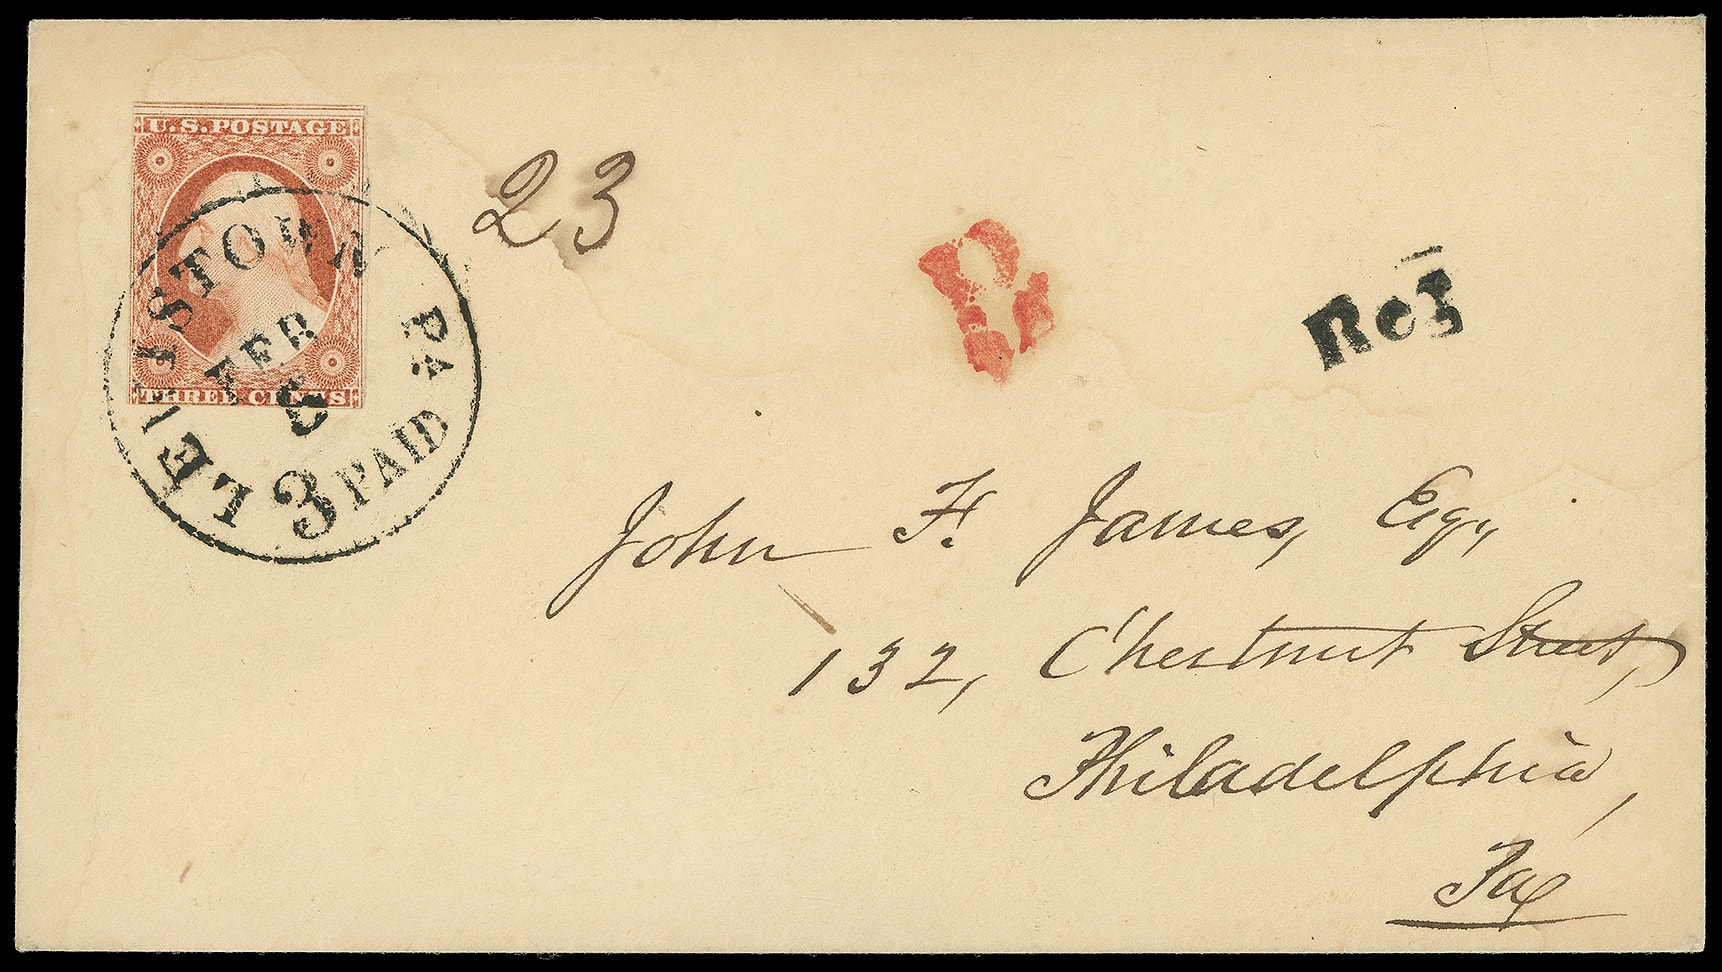 U.S. POSTAGE
THREE CENTS
LEWISTOWN PA
FEB
3 PAID
23
R
Reg
John F. James, Esq.,
132, Chestnut Street,
Philadelphia,
Pa